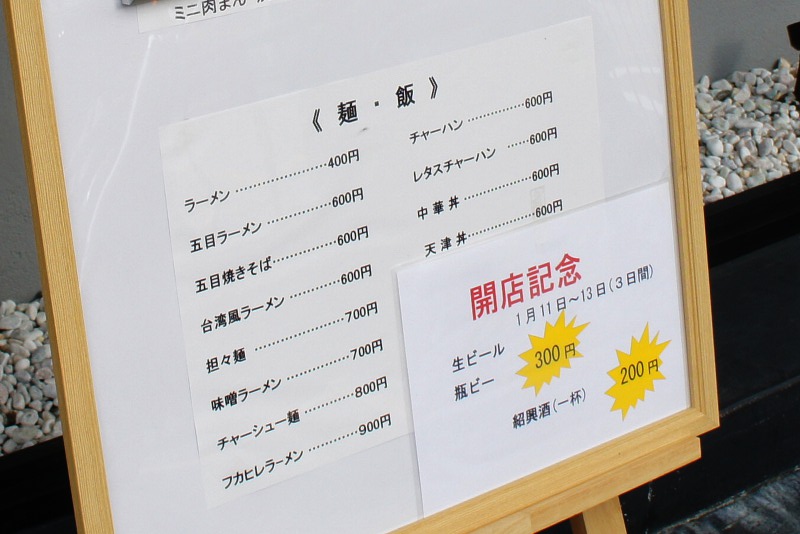 ミニ肉まん
《 麺 ・ 飯 》
ラーメン ………………… 400円
五目ラーメン …………… 600円
五目焼きそば …………… 600円
台湾風ラーメン ………… 600円
担々麺 ………………… 700円
味噌ラーメン …………… 700円
チャーシュー麺 ………… 800円
フカヒレラーメン ……… 900円
チャーハン ………… 600円
レタスチャーハン …… 600円
中華丼 …………… 600円
天津丼 …………… 600円
開店記念
1月11日～13日(3日間)
生ビール
瓶ビー
300円
紹興酒(一杯)
200円